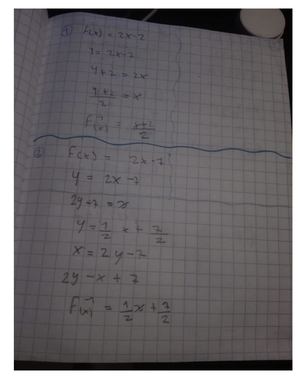 1 F(x) = 2x-2
y = 2x-2
y+2 = 2x
y+2/2 = x
F⁻¹(x) = x+2/2
2 F(x) = 2x-7
y = 2x-7
2y+7 = x
y = 1/2 x + 7/2
x = 2y-7
2y-x+7
F⁻¹(x) = 1/2 x + 7/2